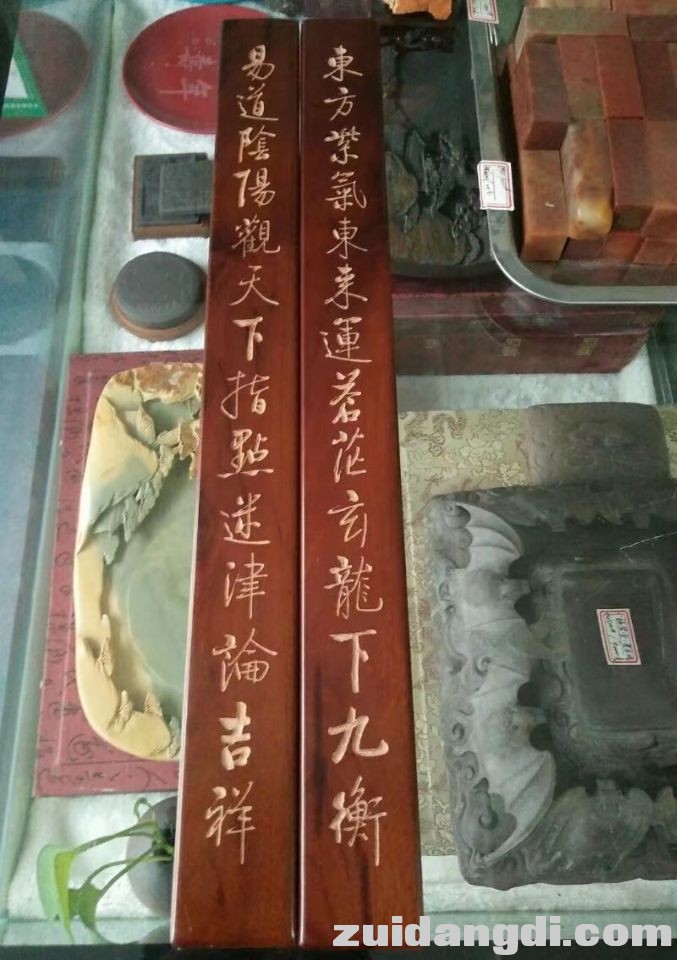 東方紫氣東来運蒼茫玄龍下九衡
易道陰陽觀天下指點迷津論吉祥
zuidangdi.com